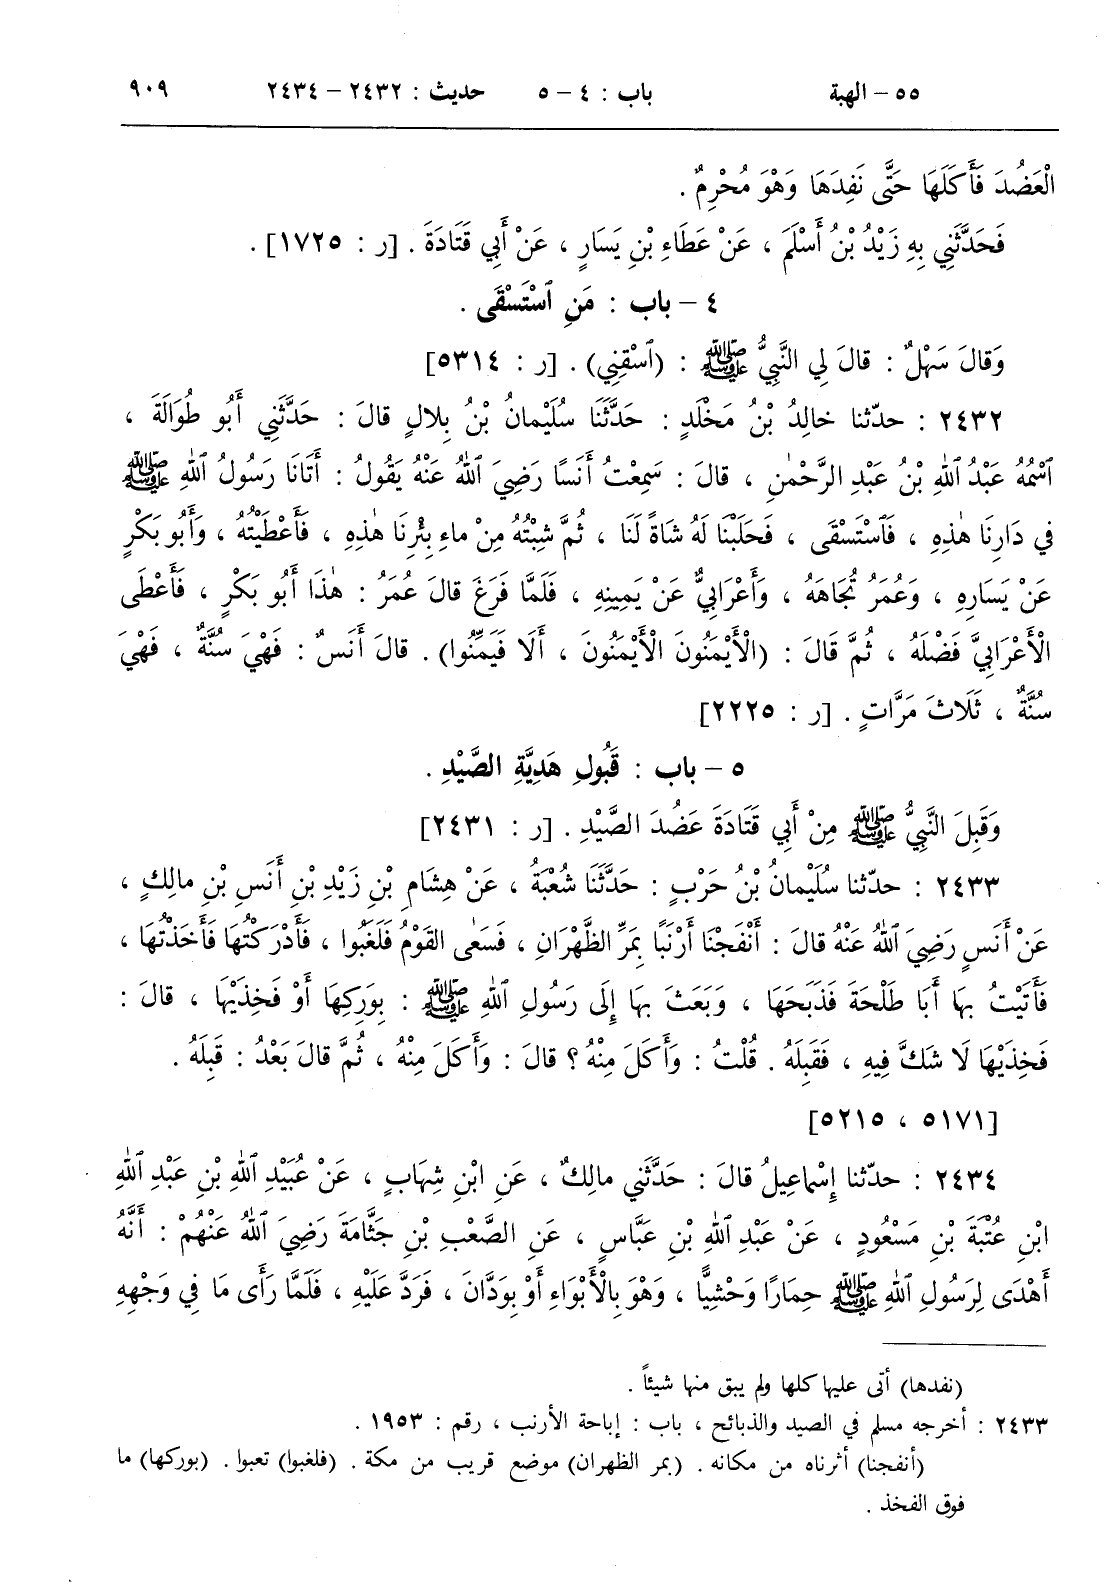 ٥٥ – الهبة باب : ٤ – ٥ حديث : ٢٤٣٢ – ٢٤٣٤ ٩٠٩
الْعَضُدَ فَأَكَلَهَا حَتَّى نَفِدَهَا وَهْوَ مُحْرِمٌ .
فَحَدَّثَنِي بِهِ زَيْدُ بْنُ أَسْلَمَ ، عَنْ عَطَاءِ بْنِ يَسَارٍ ، عَنْ أَبِي قَتَادَةَ . [ر : ١٧٢٥] .
٤ – باب : مَنِ ٱسْتَسْقَى .
وَقالَ سَهْلٌ : قالَ لِي النَّبِيُّ ﷺ : (ٱسْقِنِي) . [ر : ٥٣١٤]
٢٤٣٢ : حدّثنا خالِدُ بْنُ مَخْلَدٍ : حَدَّثَنَا سُلَيْمانُ بْنُ بِلالٍ قالَ : حَدَّثَنِي أَبُو طُوَالَةَ ،
ٱسْمُهُ عَبْدُ ٱللهِ بْنُ عَبْدِ الرَّحْمٰنِ ، قالَ : سَمِعْتُ أَنَسًا رَضِيَ ٱللهُ عَنْهُ يَقُولُ : أَتَانَا رَسُولُ ٱللهِ ﷺ
فِي دَارِنَا هٰذِهِ ، فَٱسْتَسْقَى ، فَحَلَبْنَا لَهُ شَاةً لَنَا ، ثُمَّ شِبْتُهُ مِنْ ماءِ بِئْرِنَا هٰذِهِ ، فَأَعْطَيْتُهُ ، وَأَبُو بَكْرٍ
عَنْ يَسَارِهِ ، وَعُمَرُ تُجَاهَهُ ، وَأَعْرَابِيٌّ عَنْ يَمِينِهِ ، فَلَمَّا فَرَغَ قالَ عُمَرُ : هٰذَا أَبُو بَكْرٍ ، فَأَعْطَى
الْأَعْرَابِيَّ فَضْلَهُ ، ثُمَّ قَالَ : (الْأَيْمَنُونَ الْأَيْمَنُونَ ، أَلَا فَيَمِّنُوا) . قالَ أَنَسٌ : فَهْيَ سُنَّةٌ ، فَهْيَ
سُنَّةٌ ، ثَلَاثَ مَرَّاتٍ . [ر : ٢٢٢٥]
٥ – باب : قَبُولِ هَدِيَّةِ الصَّيْدِ .
وَقَبِلَ النَّبِيُّ ﷺ مِنْ أَبِي قَتَادَةَ عَضُدَ الصَّيْدِ . [ر : ٢٤٣١]
٢٤٣٣ : حدّثنا سُلَيْمانُ بْنُ حَرْبٍ : حَدَّثَنَا شُعْبَةُ ، عَنْ هِشَامِ بْنِ زَيْدِ بْنِ أَنَسِ بْنِ مالِكٍ ،
عَنْ أَنَسٍ رَضِيَ ٱللهُ عَنْهُ قالَ : أَنْفَجْنَا أَرْنَبًا بِمَرِّ الظَّهْرَانِ ، فَسَعٰى القَوْمُ فَلَغَبُوا ، فَأَدْرَكْتُهَا فَأَخَذْتُهَا ،
فَأَتَيْتُ بِهَا أَبَا طَلْحَةَ فَذَبَحَهَا ، وَبَعَثَ بِهَا إِلَى رَسُولِ ٱللهِ ﷺ : بِوَرِكِهَا أَوْ فَخِذَيْهَا ، قالَ :
فَخِذَيْهَا لَا شَكَّ فِيهِ ، فَقَبِلَهُ . قُلْتُ : وَأَكَلَ مِنْهُ ؟ قالَ : وَأَكَلَ مِنْهُ ، ثُمَّ قالَ بَعْدُ : قَبِلَهُ .
[٥١٧١ ، ٥٢١٥]
٢٤٣٤ : حدّثنا إِسْماعِيلُ قالَ : حَدَّثَنِي مالِكٌ ، عَنِ ابْنِ شِهَابٍ ، عَنْ عُبَيْدِ ٱللهِ بْنِ عَبْدِ ٱللهِ
ابْنِ عُتْبَةَ بْنِ مَسْعُودٍ ، عَنْ عَبْدِ ٱللهِ بْنِ عَبَّاسٍ ، عَنِ الصَّعْبِ بْنِ جَثَّامَةَ رَضِيَ ٱللهُ عَنْهُمْ : أَنَّهُ
أَهْدَى لِرَسُولِ ٱللهِ ﷺ حِمارًا وَحْشِيًّا ، وَهْوَ بِالْأَبْوَاءِ أَوْ بِوَدَّانَ ، فَرَدَّ عَلَيْهِ ، فَلَمَّا رَأَى مَا فِي وَجْهِهِ
(نفدها) أتى عليها كلها ولم يبق منها شيئاً .
٢٤٣٣ : أخرجه مسلم في الصيد والذبائح ، باب : إباحة الأرنب ، رقم : ١٩٥٣ .
(أنفجنا) أثرناه من مكانه . (بمر الظهران) موضع قريب من مكة . (فلغبوا) تعبوا . (بوركها) ما
فوق الفخذ .